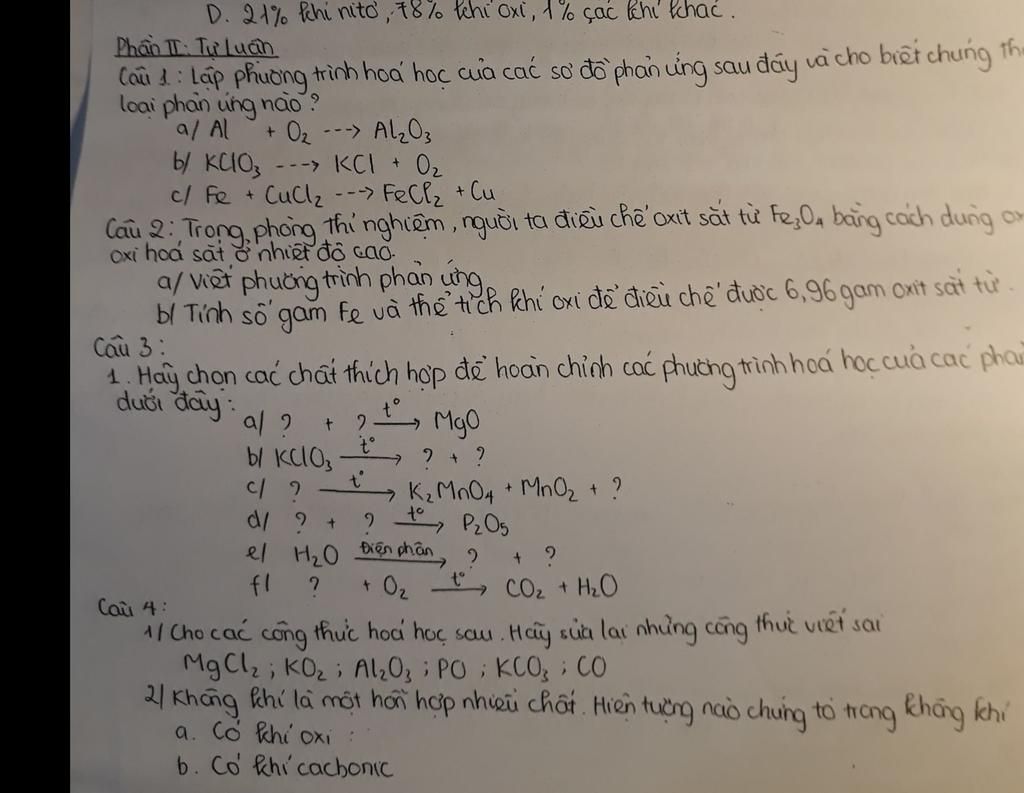 D. 21% khí nitơ, 78% khí oxi, 1% các khí khác.
Phần II: Tự luận
Câu 1: Lập phương trình hoá học của các sơ đồ phản ứng sau đây và cho biết chúng
loại phản ứng nào?
a/ Al + O₂ ---> Al₂O₃
b/ KClO₃ ---> KCl + O₂
c/ Fe + CuCl₂ ---> FeCl₂ + Cu
Câu 2: Trong phòng thí nghiệm, người ta điều chế oxit sắt từ Fe₃O₄ bằng cách dùng
oxi hoá sắt ở nhiệt độ cao.
a/ Viết phương trình phản ứng
b/ Tính số gam Fe và thể tích khí oxi để điều chế được 6,96 gam oxit sắt từ.
Câu 3:
1. Hãy chọn các chất thích hợp để hoàn chỉnh các phương trình hoá học của các
dưới đây:
a/ ? + ? t°→ MgO
b/ KClO₃ t°→ ? + ?
c/ ? t°→ K₂MnO₄ + MnO₂ + ?
d/ ? + ? t°→ P₂O₅
e/ H₂O Điện phân→ ? + ?
f/ ? + O₂ t°→ CO₂ + H₂O
Câu 4:
1/ Cho các công thức hoá học sau. Hãy sửa lại những công thức viết sai
MgCl₂ ; KO₂ ; Al₂O₃ ; PO ; KCO₃ ; CO
2/ Không khí là một hỗn hợp nhiều chất. Hiện tượng nào chứng tỏ trong không khí
a. Có khí oxi :
b. Có khí cacbonic